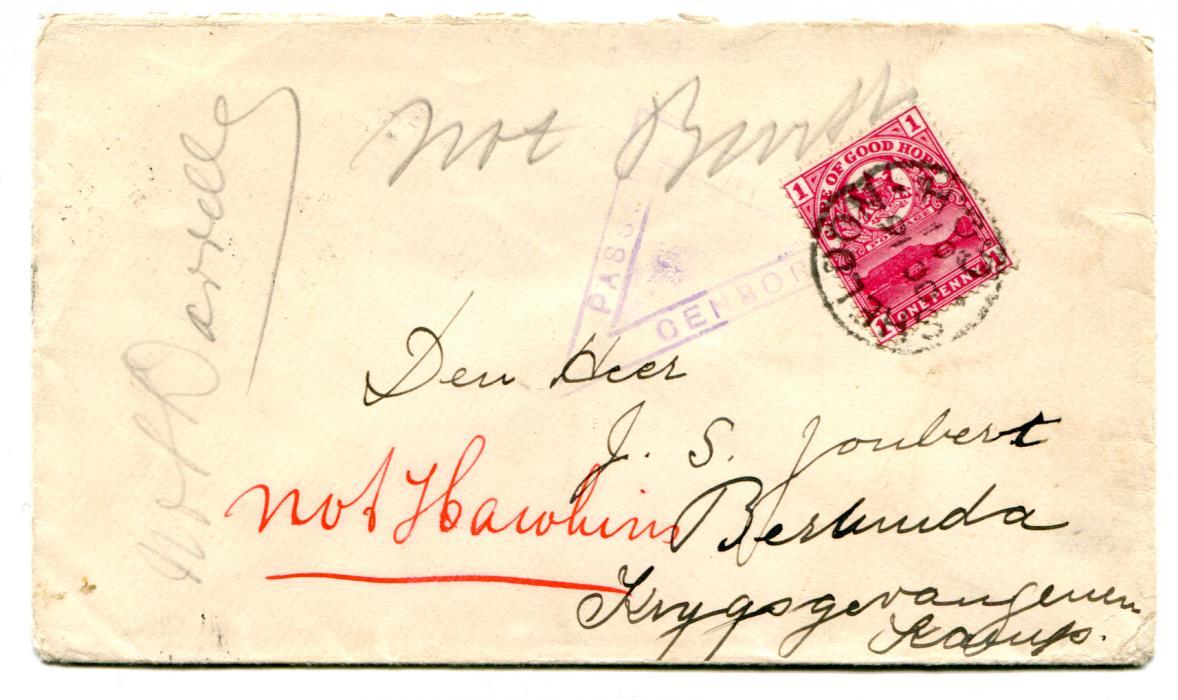 not Burtt
Not Darrells
PASSED
CENSOR
1 1
CAPE OF GOOD HOPE
POSTAGE
1 ONE PENNY 1
Den Heer
J. S. Joubert
not Hawkins
Bermuda
Krygsgevangenen
Kamp.